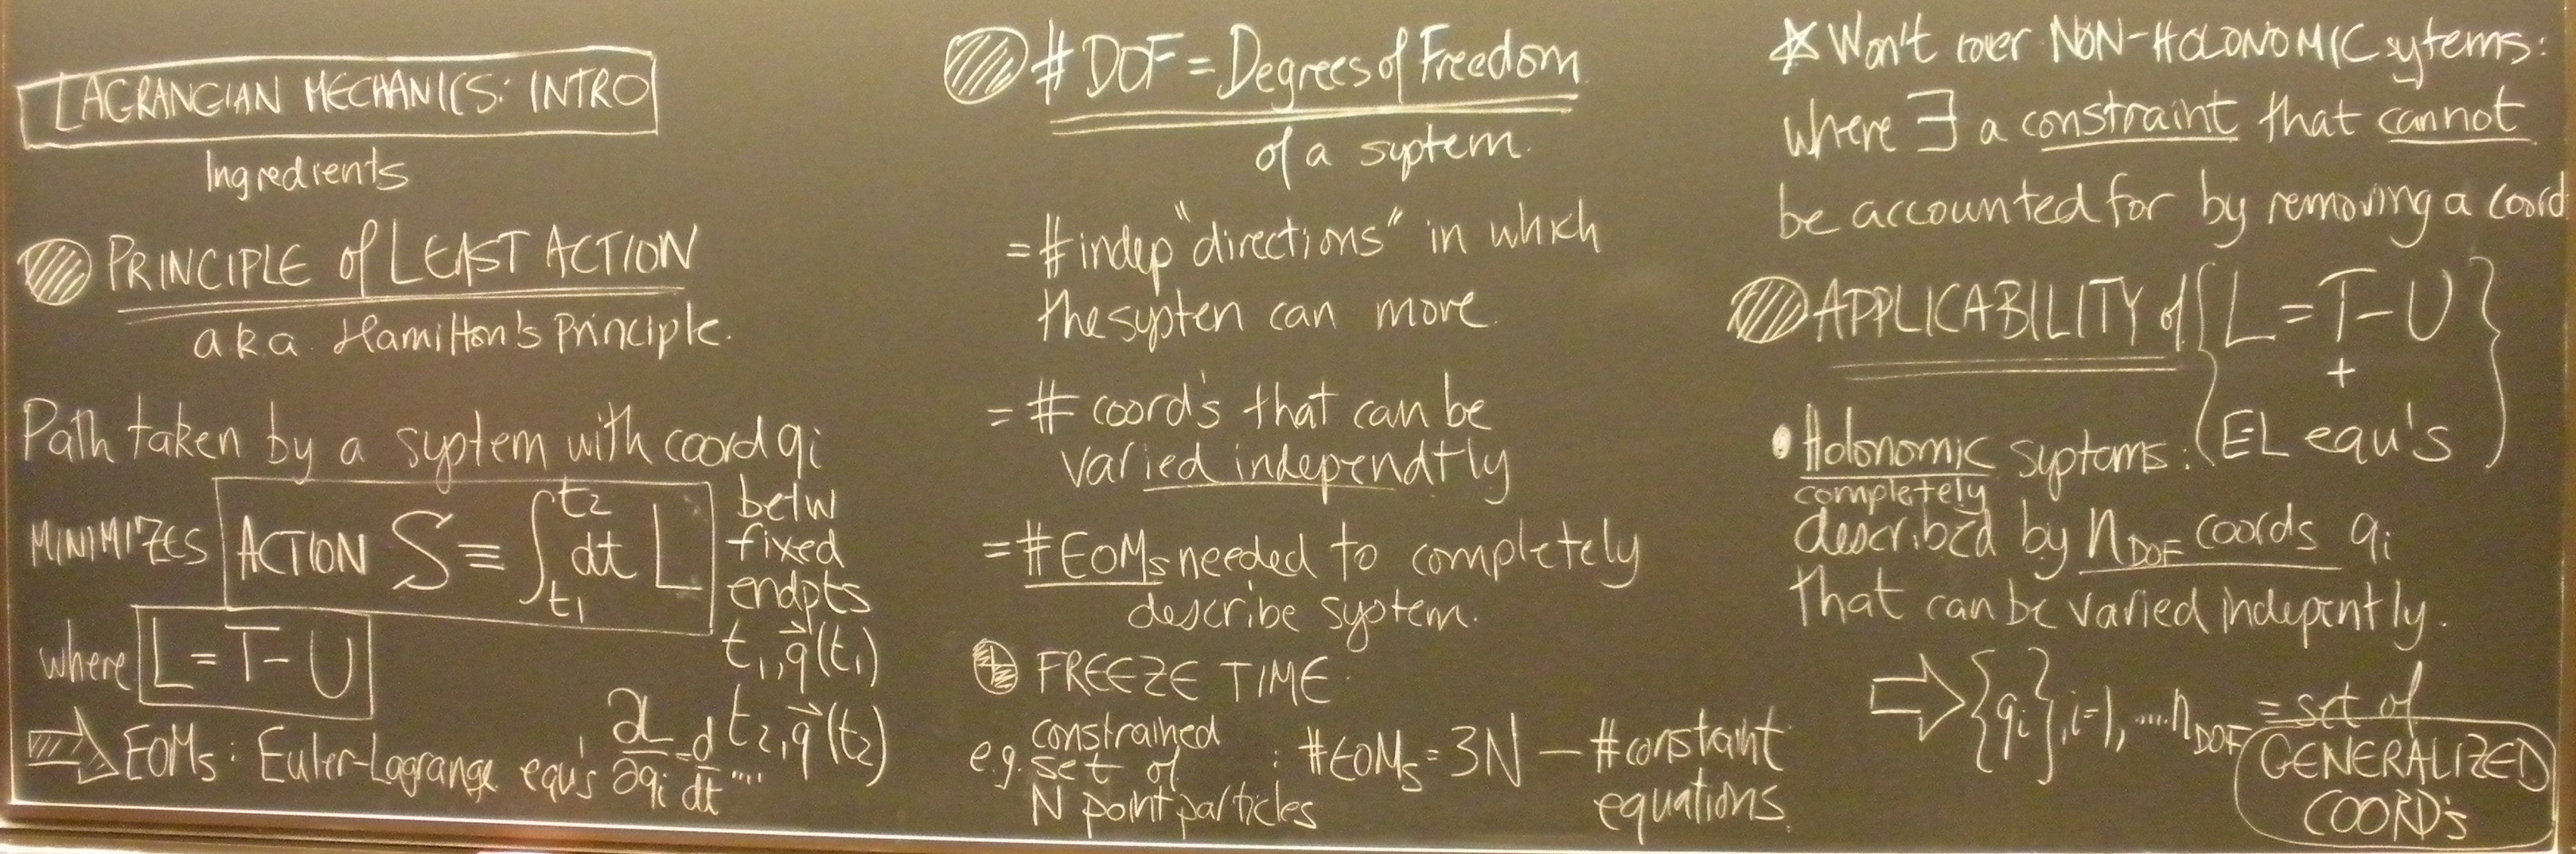 LAGRANGIAN MECHANICS: INTRO
Ingredients
PRINCIPLE of LEAST ACTION
aka Hamilton's Principle.
Path taken by a system with coord qi
MINIMIZES ACTION S ≡ ∫_{t1}^{t2} dt L
betw
fixed
endpts
t1, q⃗(t1)
t2, q⃗(t2)
where L = T - U
⇒ EOMs: Euler-Lagrange equ's ∂L/∂qi = d/dt ....
# DOF = Degrees of Freedom
of a system.
= # indep "directions" in which
the system can move.
= # coord's that can be
varied independtly
= # EOMs needed to completely
describe system.
FREEZE TIME.
e.g. constrained
set of
N point particles
: #EOMs = 3N - #constraint
equations.
* Won't cover NON-HOLONOMIC sytems:
where ∃ a constraint that cannot
be accounted for by removing a coord
APPLICABILITY of { L = T - U
+
EL equ's }
• Holonomic systems:
completely
described by n_DOF coords qi
that can be varied indepently.
⇒ {qi}, i=1, .... n_DOF = set of
GENERALIZED
COORD's